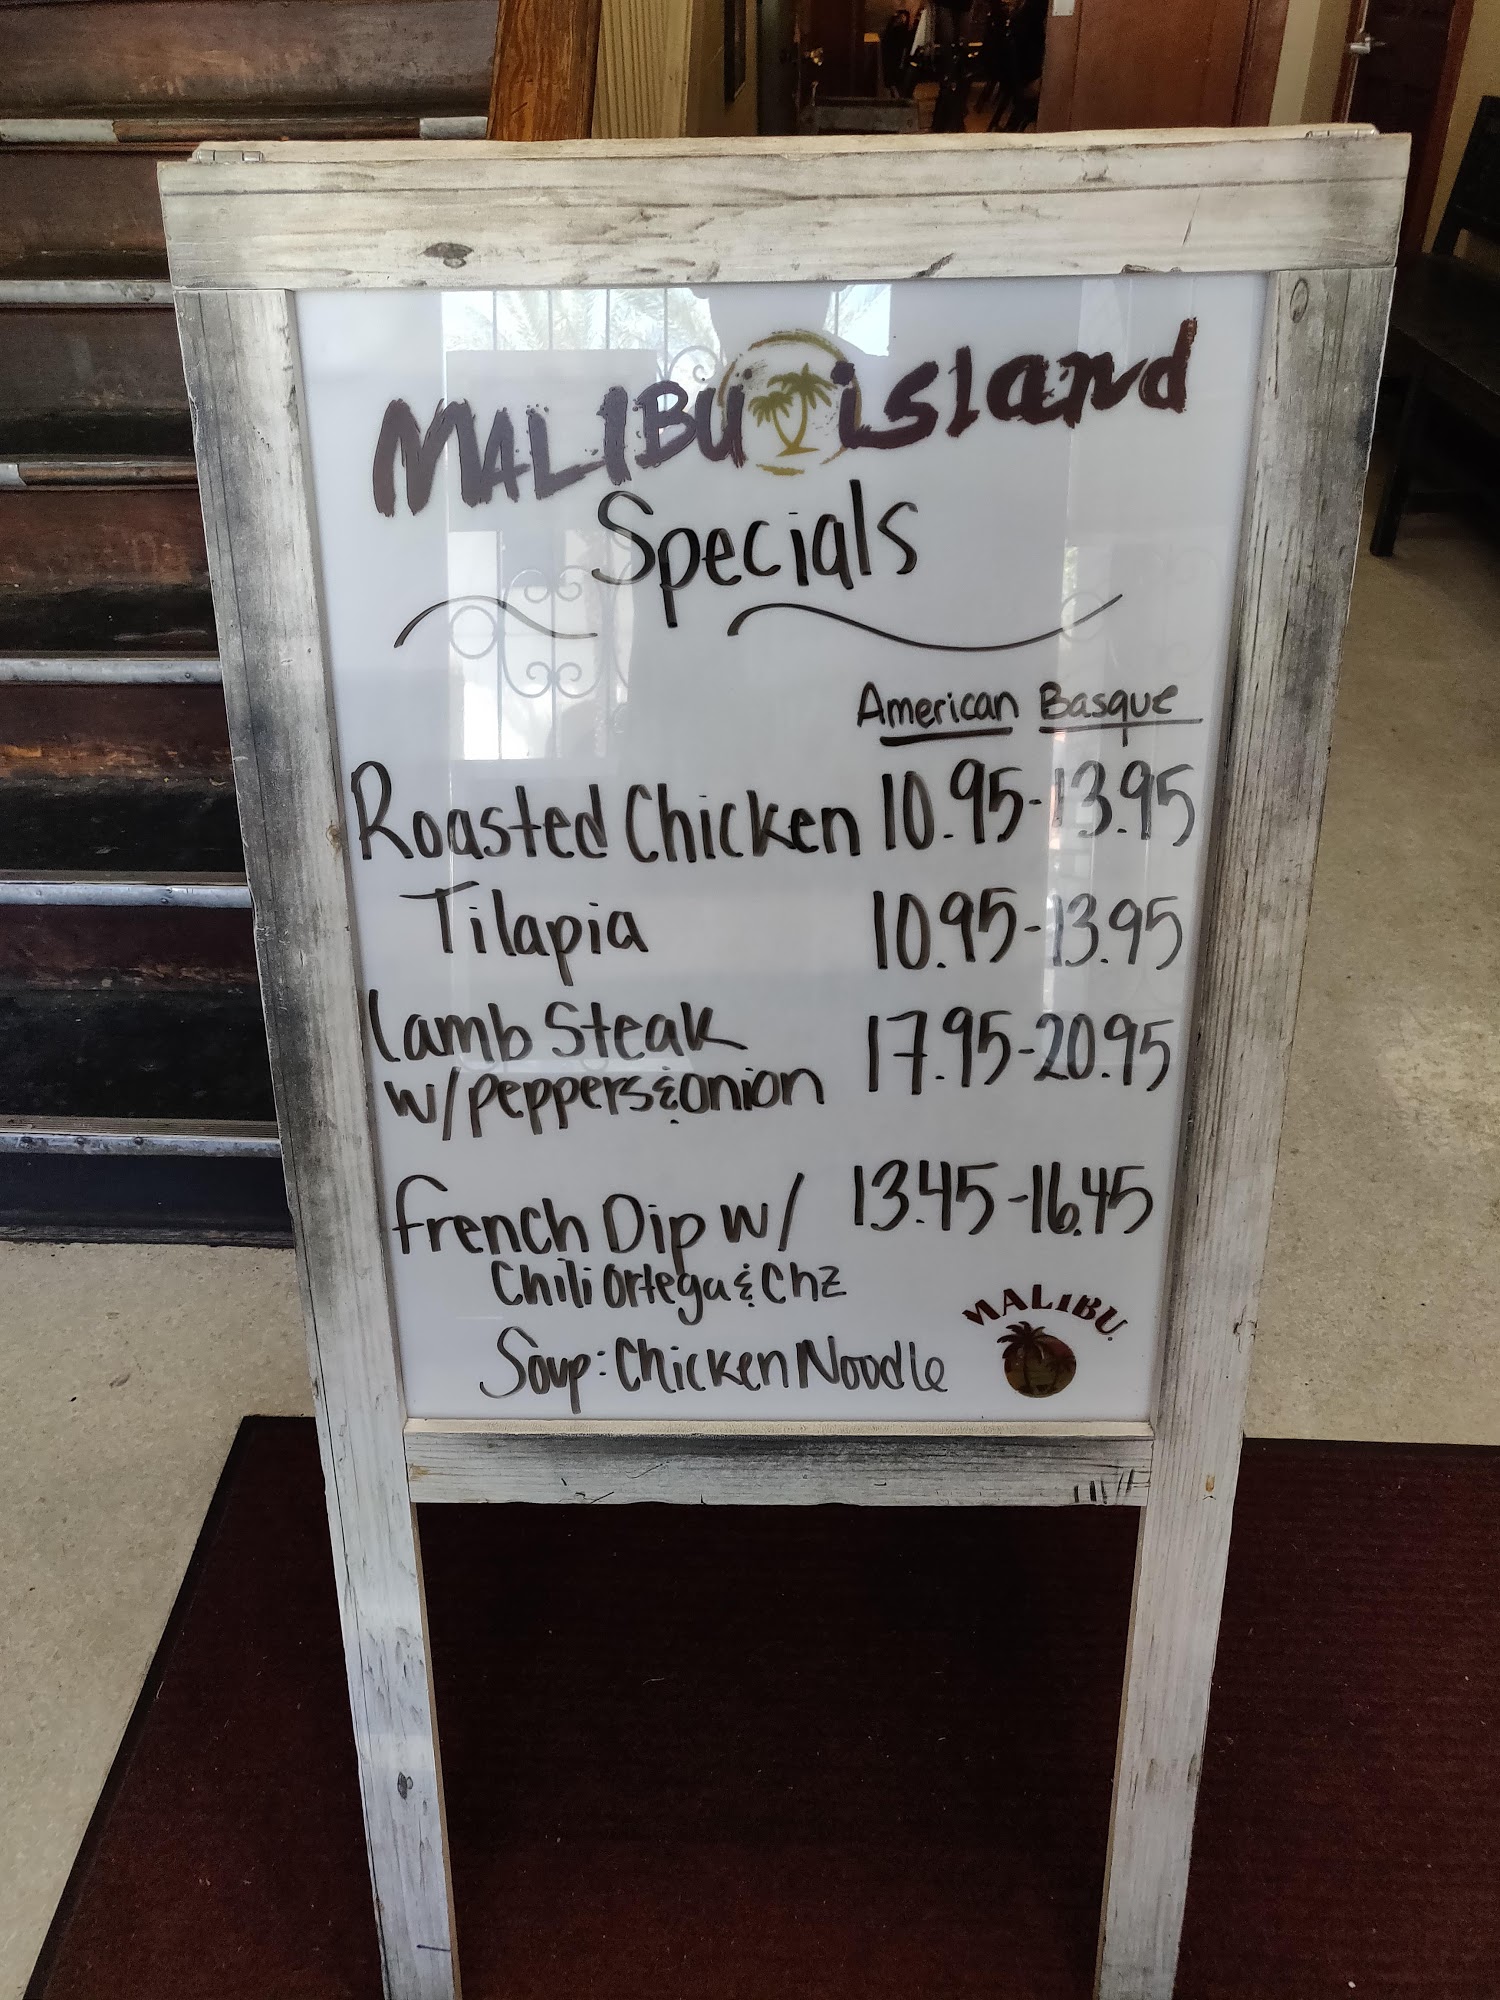 MALIBU island
Specials
American Basque
Roasted Chicken 10.95-13.95
Tilapia 10.95-13.95
Lamb Steak 17.95-20.95
w/peppers & onion
French Dip w/ 13.45-16.45
Chili Ortega & Chz
Soup: Chicken Noodle
MALIBU